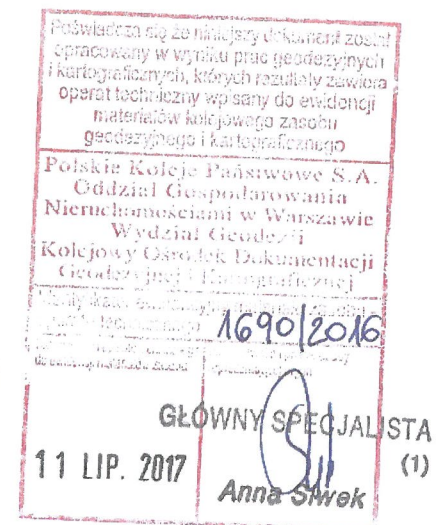 Poświadcza się że niniejszy dokument został
opracowany w wyniku prac geodezyjnych
i kartograficznych, których rezultaty zawiera
operat techniczny wpisany do ewidencji
materiałów kolejowego zasobu
geodezyjnego i kartograficznego
Polskie Koleje Państwowe S.A.
Oddział Gospodarowania
Nieruchomościami w Warszawie
Wydział Geodezji
Kolejowy Ośrodek Dokumentacji
Geodezyjnej i Kartograficznej
1690/2016
GŁÓWNY SPECJALISTA
(1)
11 LIP. 2017
Anna Siwek